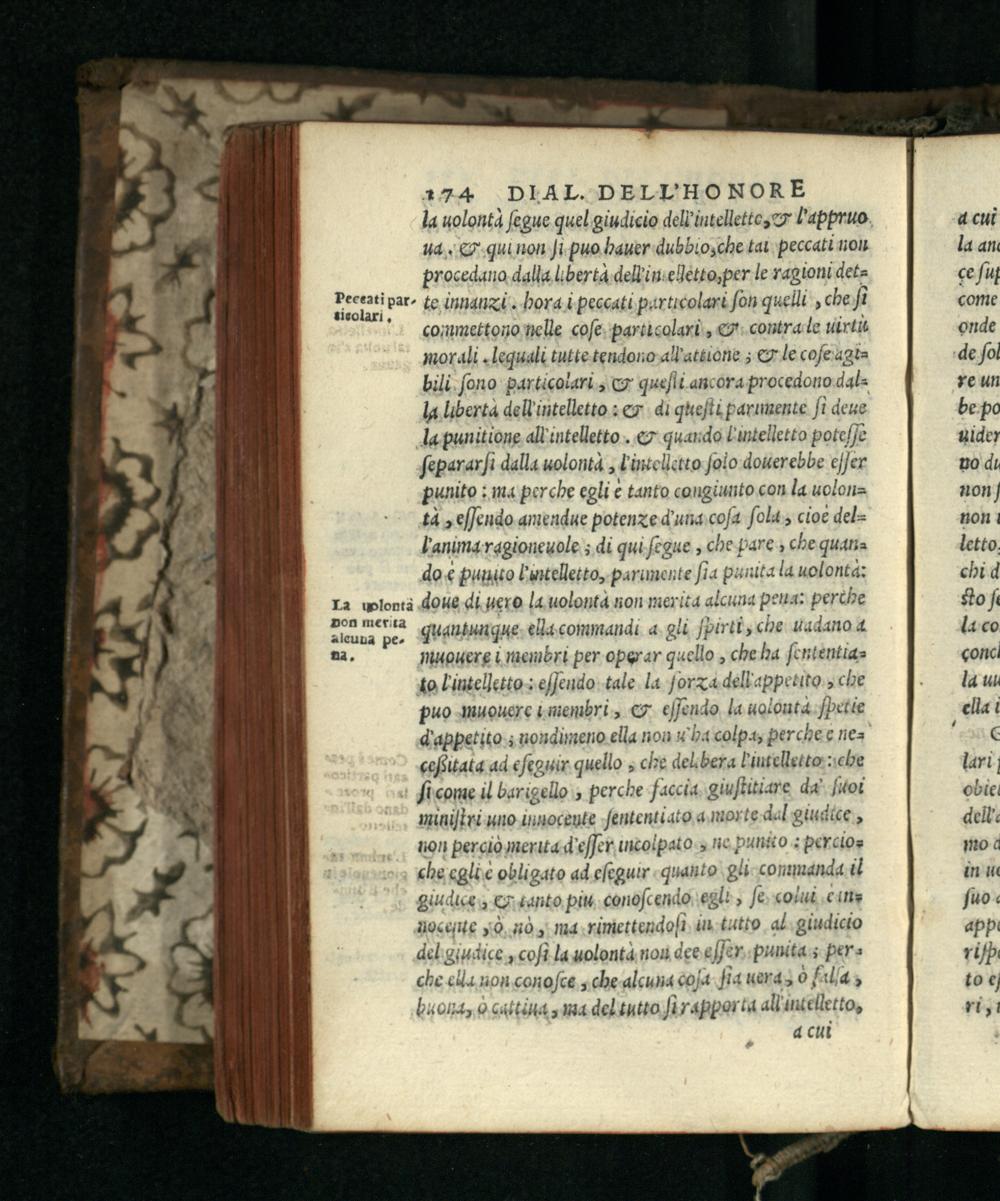 174 DIAL. DELL'HONORE
la uolontà ſegue quel giudicio dell'intelletto, & l'appruo
ua. & qui non ſi puo hauer dubbio, che tai peccati non
procedano dalla libertà dell'in elletto, per le ragioni det=
te innanzi. hora i peccati particolari ſon quelli, che ſi
commettono nelle coſe particolari, & contra le uirtù
morali. lequali tutte tendono all'attione; & le coſe agi=
bili ſono particolari, & queſti ancora procedono dal=
la libertà dell'intelletto: & di queſti parimente ſi deue
la punitione all'intelletto. & quando l'intelletto poteſſe
ſepararſi dalla uolontà, l'intelletto ſolo douerebbe eſſer
punito: ma perche egli è tanto congiunto con la uolon=
tà, eſſendo amendue potenze d'una coſa ſola, cioè del=
l'anima ragioneuole; di qui ſegue, che pare, che quan=
do è punito l'intelletto, parimente ſia punita la uolontà:
doue di uero la uolontà non merita alcuna pena: perche
quantunque ella commandi a gli ſpirti, che uadano a
muouere i membri per operar quello, che ha ſententia=
to l'intelletto: eſſendo tale la forza dell'appetito, che
puo muouere i membri, & eſſendo la uolontà ſpetie
d'appetito; nondimeno ella non u'ha colpa, perche e ne=
ceßitata ad eſeguir quello, che delibera l'intelletto: che
ſi come il barigello, perche faccia giuſtitiare da' ſuoi
miniſtri uno innocente ſententiato a morte dal giudice,
non perciò merita d'eſſer incolpato, ne punito: percio=
che egli è obligato ad eſeguir quanto gli commanda il
giudice, & tanto piu conoſcendo egli, ſe colui è in=
nocente, ò nò, ma rimettendoſi in tutto al giudicio
del giudice, coſi la uolontà non dee eſſer punita; per=
che ella non conoſce, che alcuna coſa ſia uera, ò falſa,
buona, ò cattiua, ma del tutto ſi rapporta all'intelletto,
a cui
Peccati par-
ticolari.
La uolontà
non merita
alcuna pe-
na.
a cui
la
ce
come
onde
de
re
be
uider
no
non
non
letto,
chi
ſto
la
la
ella
lari
dell'
mo
in
ſuo
to
ri,